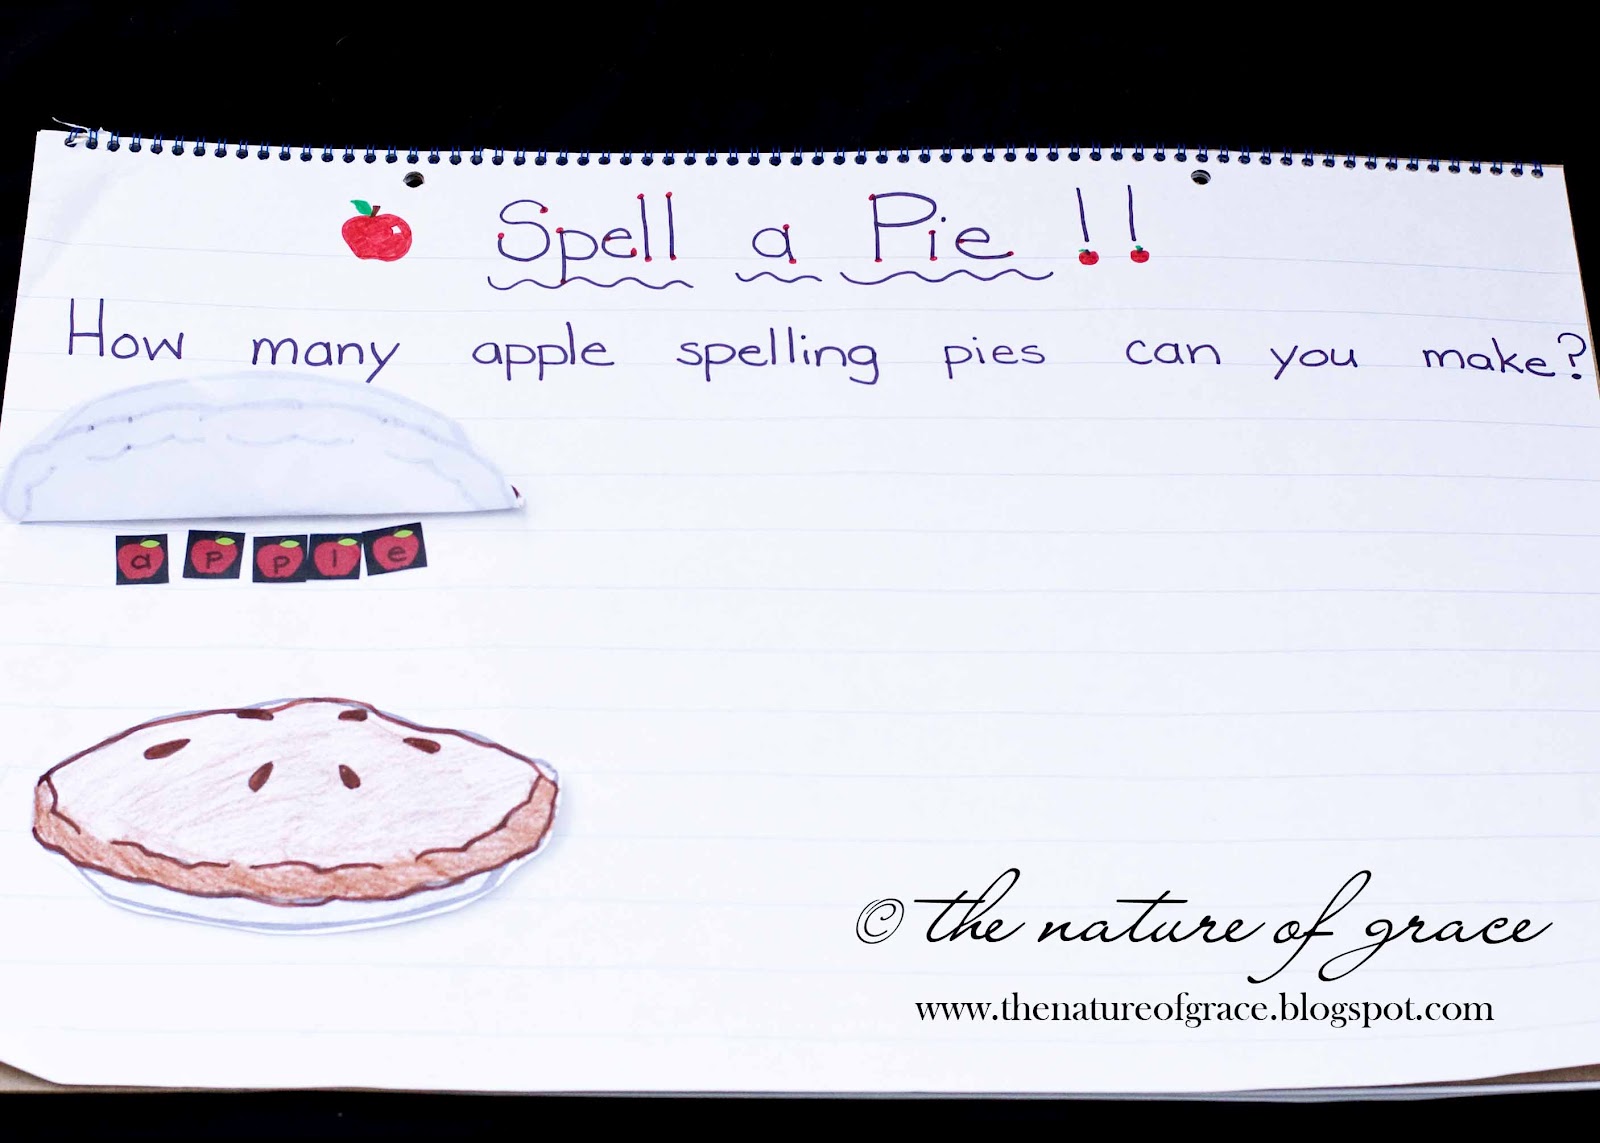 Spell a Pie !!
How many apple spelling pies can you make?
a p p l e
© the nature of grace
www.thenatureofgrace.blogspot.com